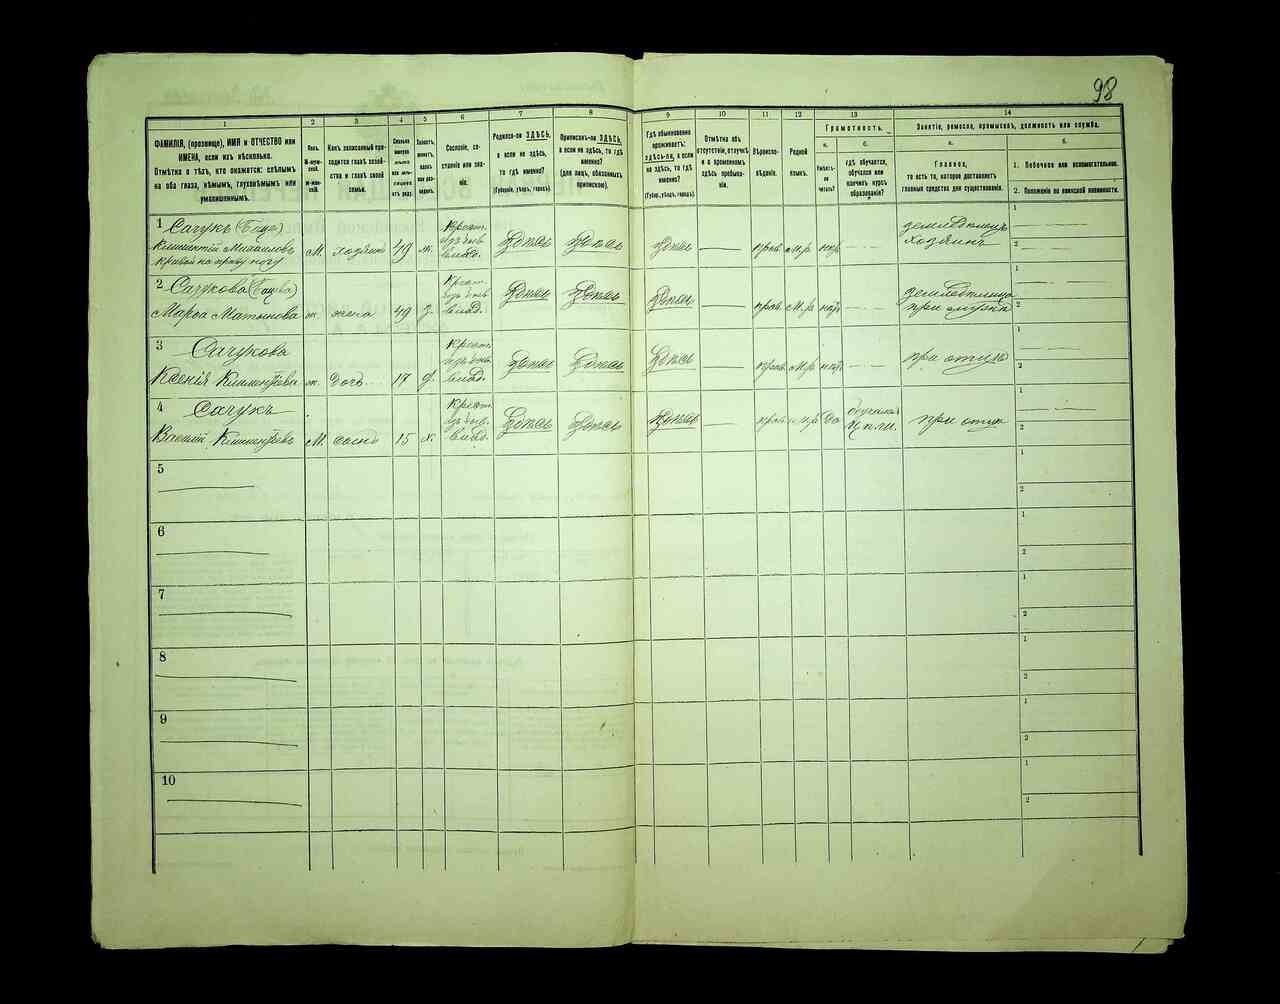 98
1
2
3
4
5
6
7
8
9
10
11
12
13
14
ФАМИЛІЯ, (прозвище), ИМЯ и ОТЧЕСТВО или
ИМЕНА, если ихъ нѣсколько.
Отмѣтка о тѣхъ, кто окажется: слѣпымъ
на оба глаза, нѣмымъ, глухонѣмымъ или
умалишеннымъ.
Полъ.
М-муж-
ской.
Ж-жен-
ской.
Какъ записанный при-
ходится главѣ хозяй-
ства и главѣ своей
семьи.
Сословіе, со-
стояніе или зва-
ніе.
Родился-ли ЗДѢСЬ,
а если не здѣсь,
то гдѣ именно?
(Губернія, уѣздъ, городъ).
Приписанъ-ли ЗДѢСЬ,
а если не здѣсь, то гдѣ
именно?
(для лицъ, обязанныхъ
припискою).
Гдѣ обыкновенно
проживаетъ:
здѣсь-ли, а если
не здѣсь, то гдѣ
именно?
(Губер., уѣздъ, городъ).
Отмѣтка объ
отсутствіи, отлучкѣ
и о временномъ
здѣсь пребыва-
ніи.
Вѣроиспо-
вѣданіе.
Родной
языкъ.
Грамотность.
а.
Умѣетъ-
ли
читать?
б.
гдѣ обучается,
обучался или
кончилъ курсъ
образованія?
Занятіе, ремесло, промыселъ, должность или служба.
а.
Главное,
то есть то, которое доставляетъ
главныя средства для существованія.
б.
1. Побочное или вспомогательное.
2. Положеніе по воинской повинности.
1 Сачукъ (Баца)
Климентій Михаиловъ
Кривой на праву ногу
М. хозяинъ 49 ж.
Крест.
изъ быв.
влад.
Здѣсь Здѣсь Здѣсь
прав. м.р. нѣт
земледѣлецъ
хозяинъ
1
2
2 Сачукова
Марѳа
ж. жена 49 З.
Крест.
изъ быв.
влад.
Здѣсь Здѣсь Здѣсь
прав. М.р. нѣт
земледѣлица
при мужѣ
1
2
3 Сачукова
Ксенія Климентьева
ж. дочь 17 д.
Крест.
изъ быв.
влад.
Здѣсь Здѣсь Здѣсь
прав. М.р. нѣт
при отцѣ
1
2
4 Сачукъ
Василій Климентьевъ
М. сынъ 15 х.
Крест.
изъ быв.
влад.
Здѣсь Здѣсь Здѣсь
прав. м.р. Да
при отцѣ
1
2
5
1
2
6
1
2
7
1
2
8
1
2
9
1
2
10
1
2